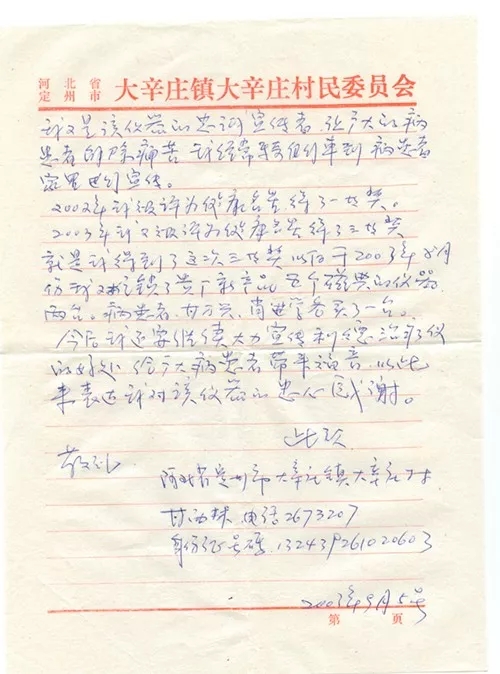 河北省
定州市 大辛庄镇大辛庄村民委员会
我又是该仪器的忠诚宣传者,让广大的病
患者解除痛苦 我经常骑自行车到病患者
家里进行宣传。
2002年我被评为健康员 得了一等奖。
2003年我又被评为健康员 得了三等奖
就是我得到了这次三等奖 以后于2003年8月
份我又 了贵厂新产品 五个 的仪器
两台。病患者,甘 买了一台。
今后我还要继续大力宣传利 治疗仪
的好处 给广大病患者带来福音 以此
来表达我对该仪器的忠心感谢。
此致
敬礼
河北省定州市大辛庄镇大辛庄村
甘 电话2673207
身份证号码 132439261020603
2003年9月5号
第 页